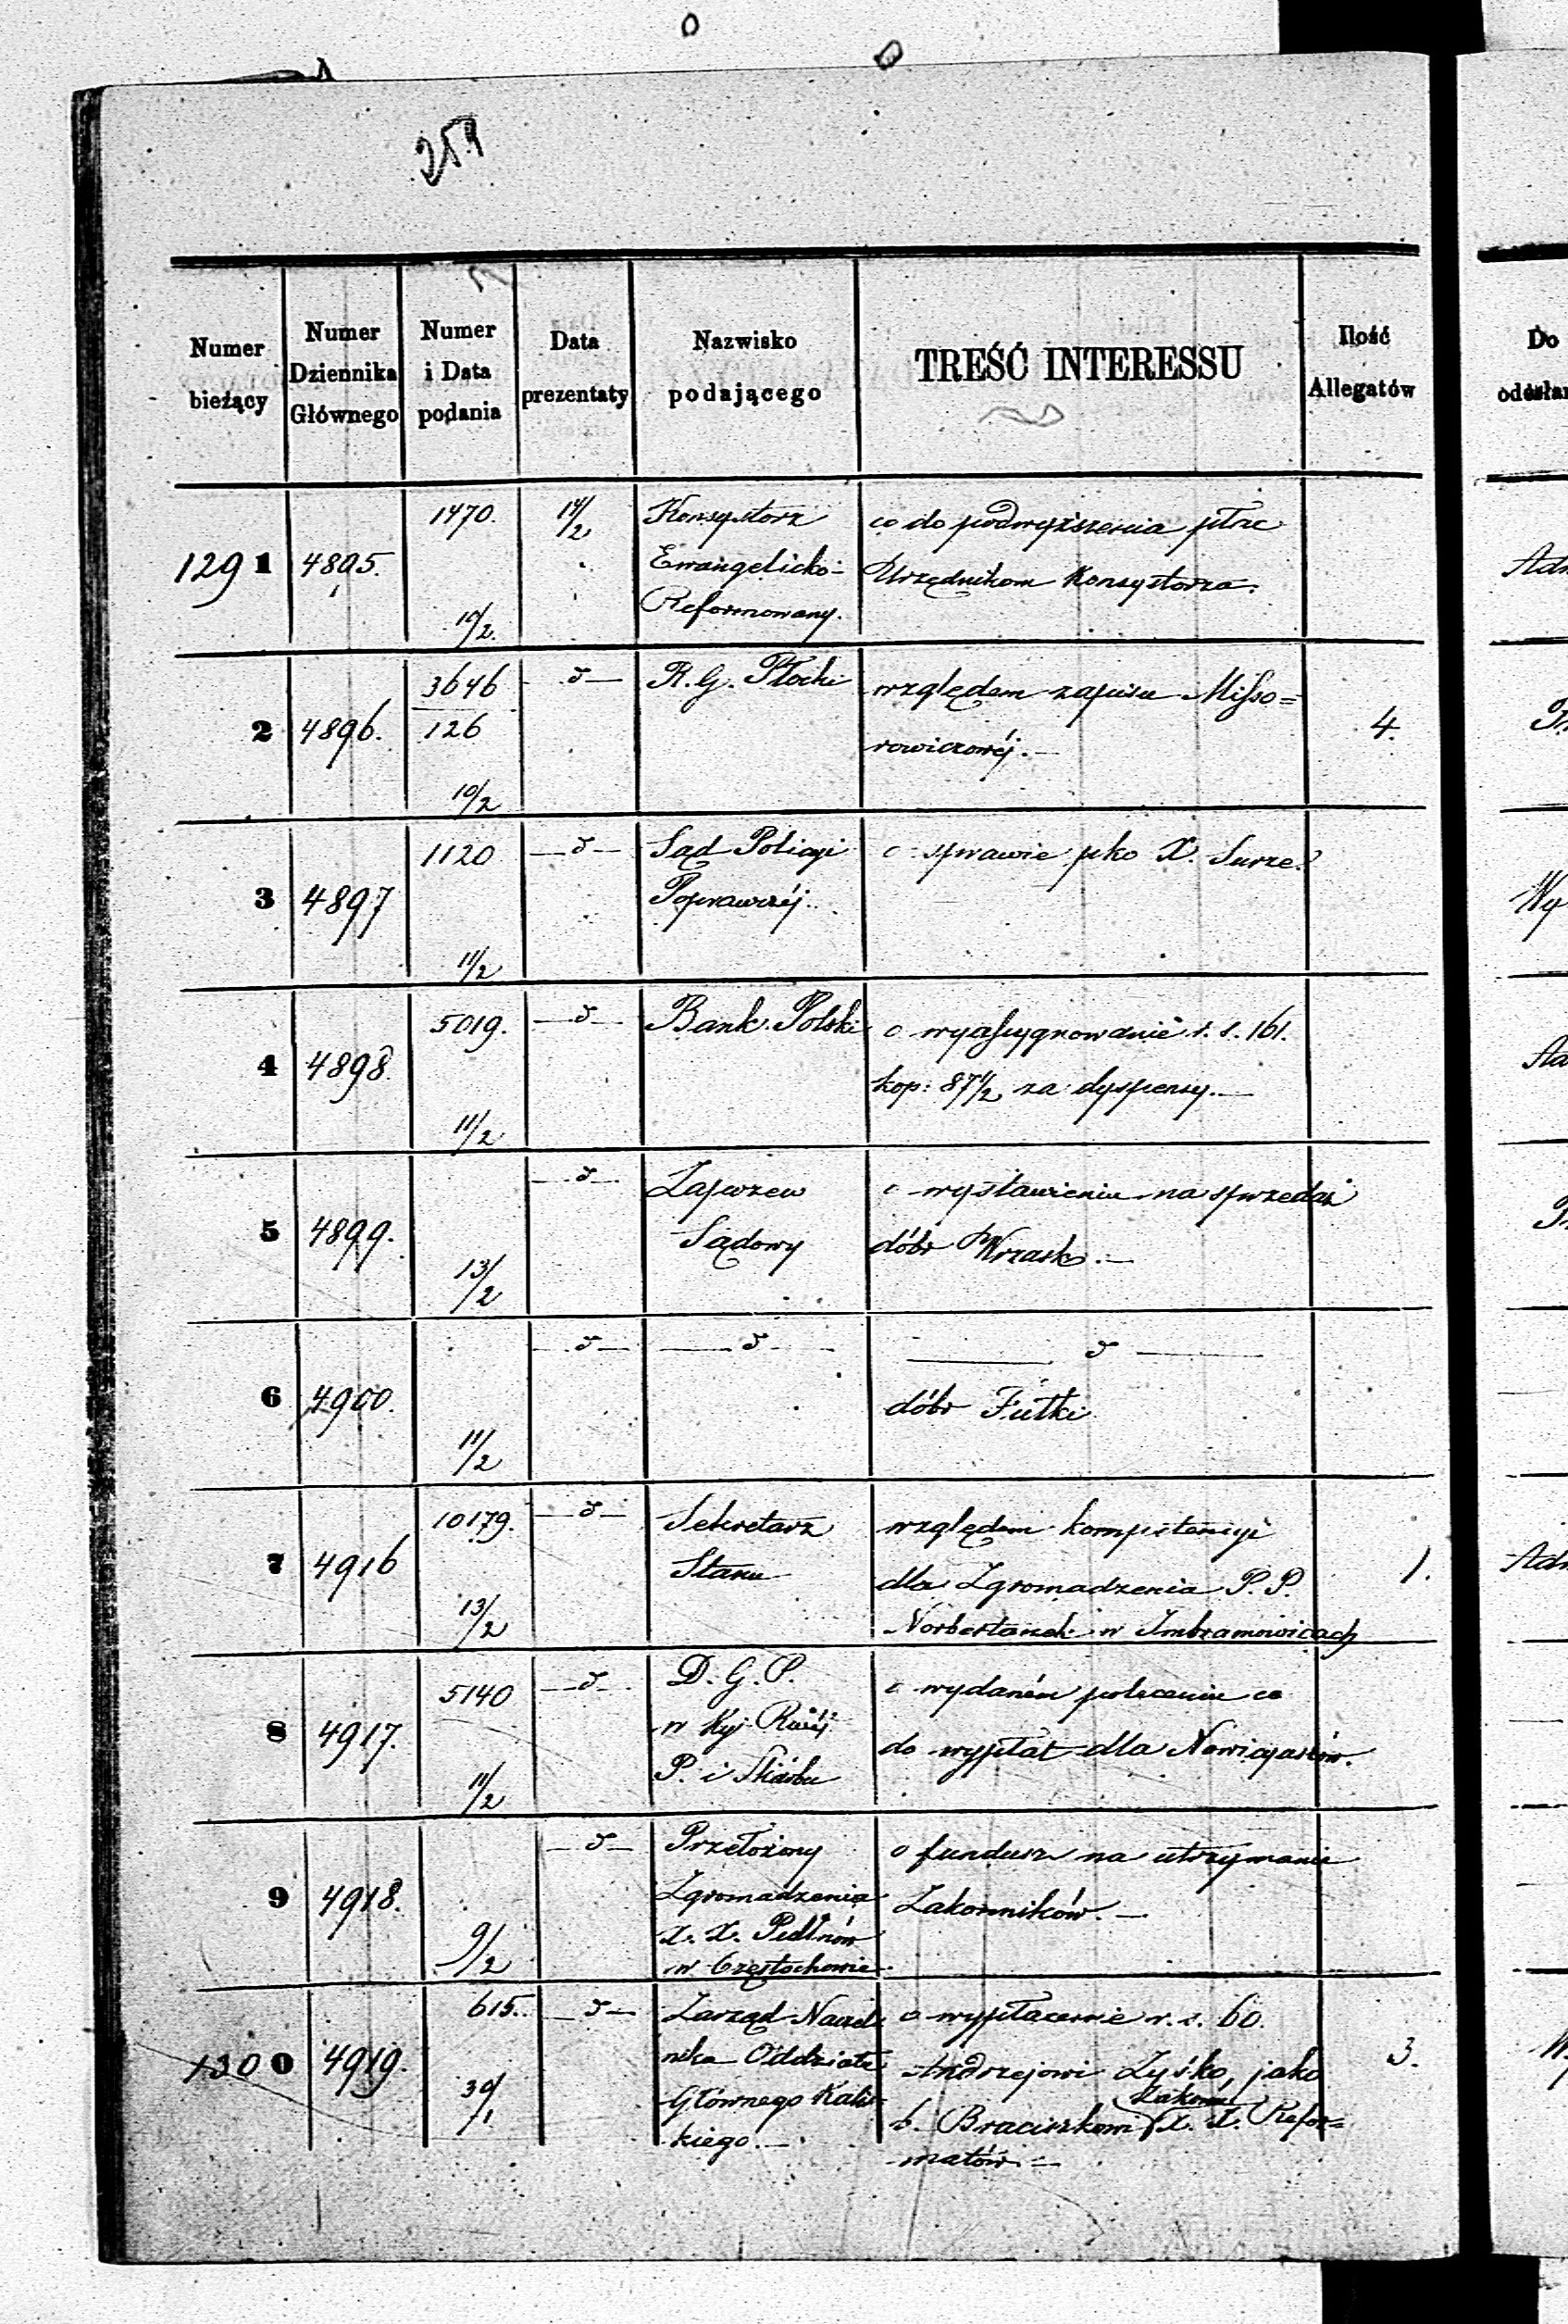 259
Numer bieżący
Numer Dziennika Głównego
Numer i Data podania
Data prezentaty
Nazwisko podającego
TREŚĆ INTERESSU
Ilość Allegatów
Do
1291 4895. 1470. 10/2. 14/2
Konsystorz
Ewangelicko-
Reformowany.
co do podwyższenia płac
Urzędnikom Konsystorza.
2 4896. 3646
126
10/2
R. G. Płocki
względem zapisu Misso=
rowiczowéj.—
4.
3 4897 1120
11/2
Sąd Policyi
Poprawczéj.
o sprawie pko X. Surze
Wy
4 4898. 5019.
11/2
Bank Polski
o wyassygnowanie r. s. 161.
kop: 87 1/2 za dyspensy.—
5 4899. 13/2
Zapozew
Sądowy
o wystawieniu na sprzedaż
dóbr Wrzask.—
6 4900. 11/2
dóbr Futki
7 4916 10179.
13/2
Sekretarz
Stanu
względem kompetencyi
dla Zgromadzenia P. P.
Norbertanek w Imbramowicach
1.
8 4917. 5140
11/2
D. G. P.
w Krj. Rząj.
P. i Skarbu
o wydaném poleceniu co
do wypłat dla Nowicyaszów.
9 4918. 9/2
Przełożony
Zgromadzenia
X. X. Paulinów
w Częstochowie
o fundusz na utrzymanie
Zakonników.—
1300 4919. 615.
30/1
Zarząd Naczel
nika Oddziału
Głównego Kalis-
kiego.—
o wypłacenie r. s. 60.
Andrzejowi Zyśko, jako
b. Braciszkowi Zakonu X. X. Refor=
matów.=
3.